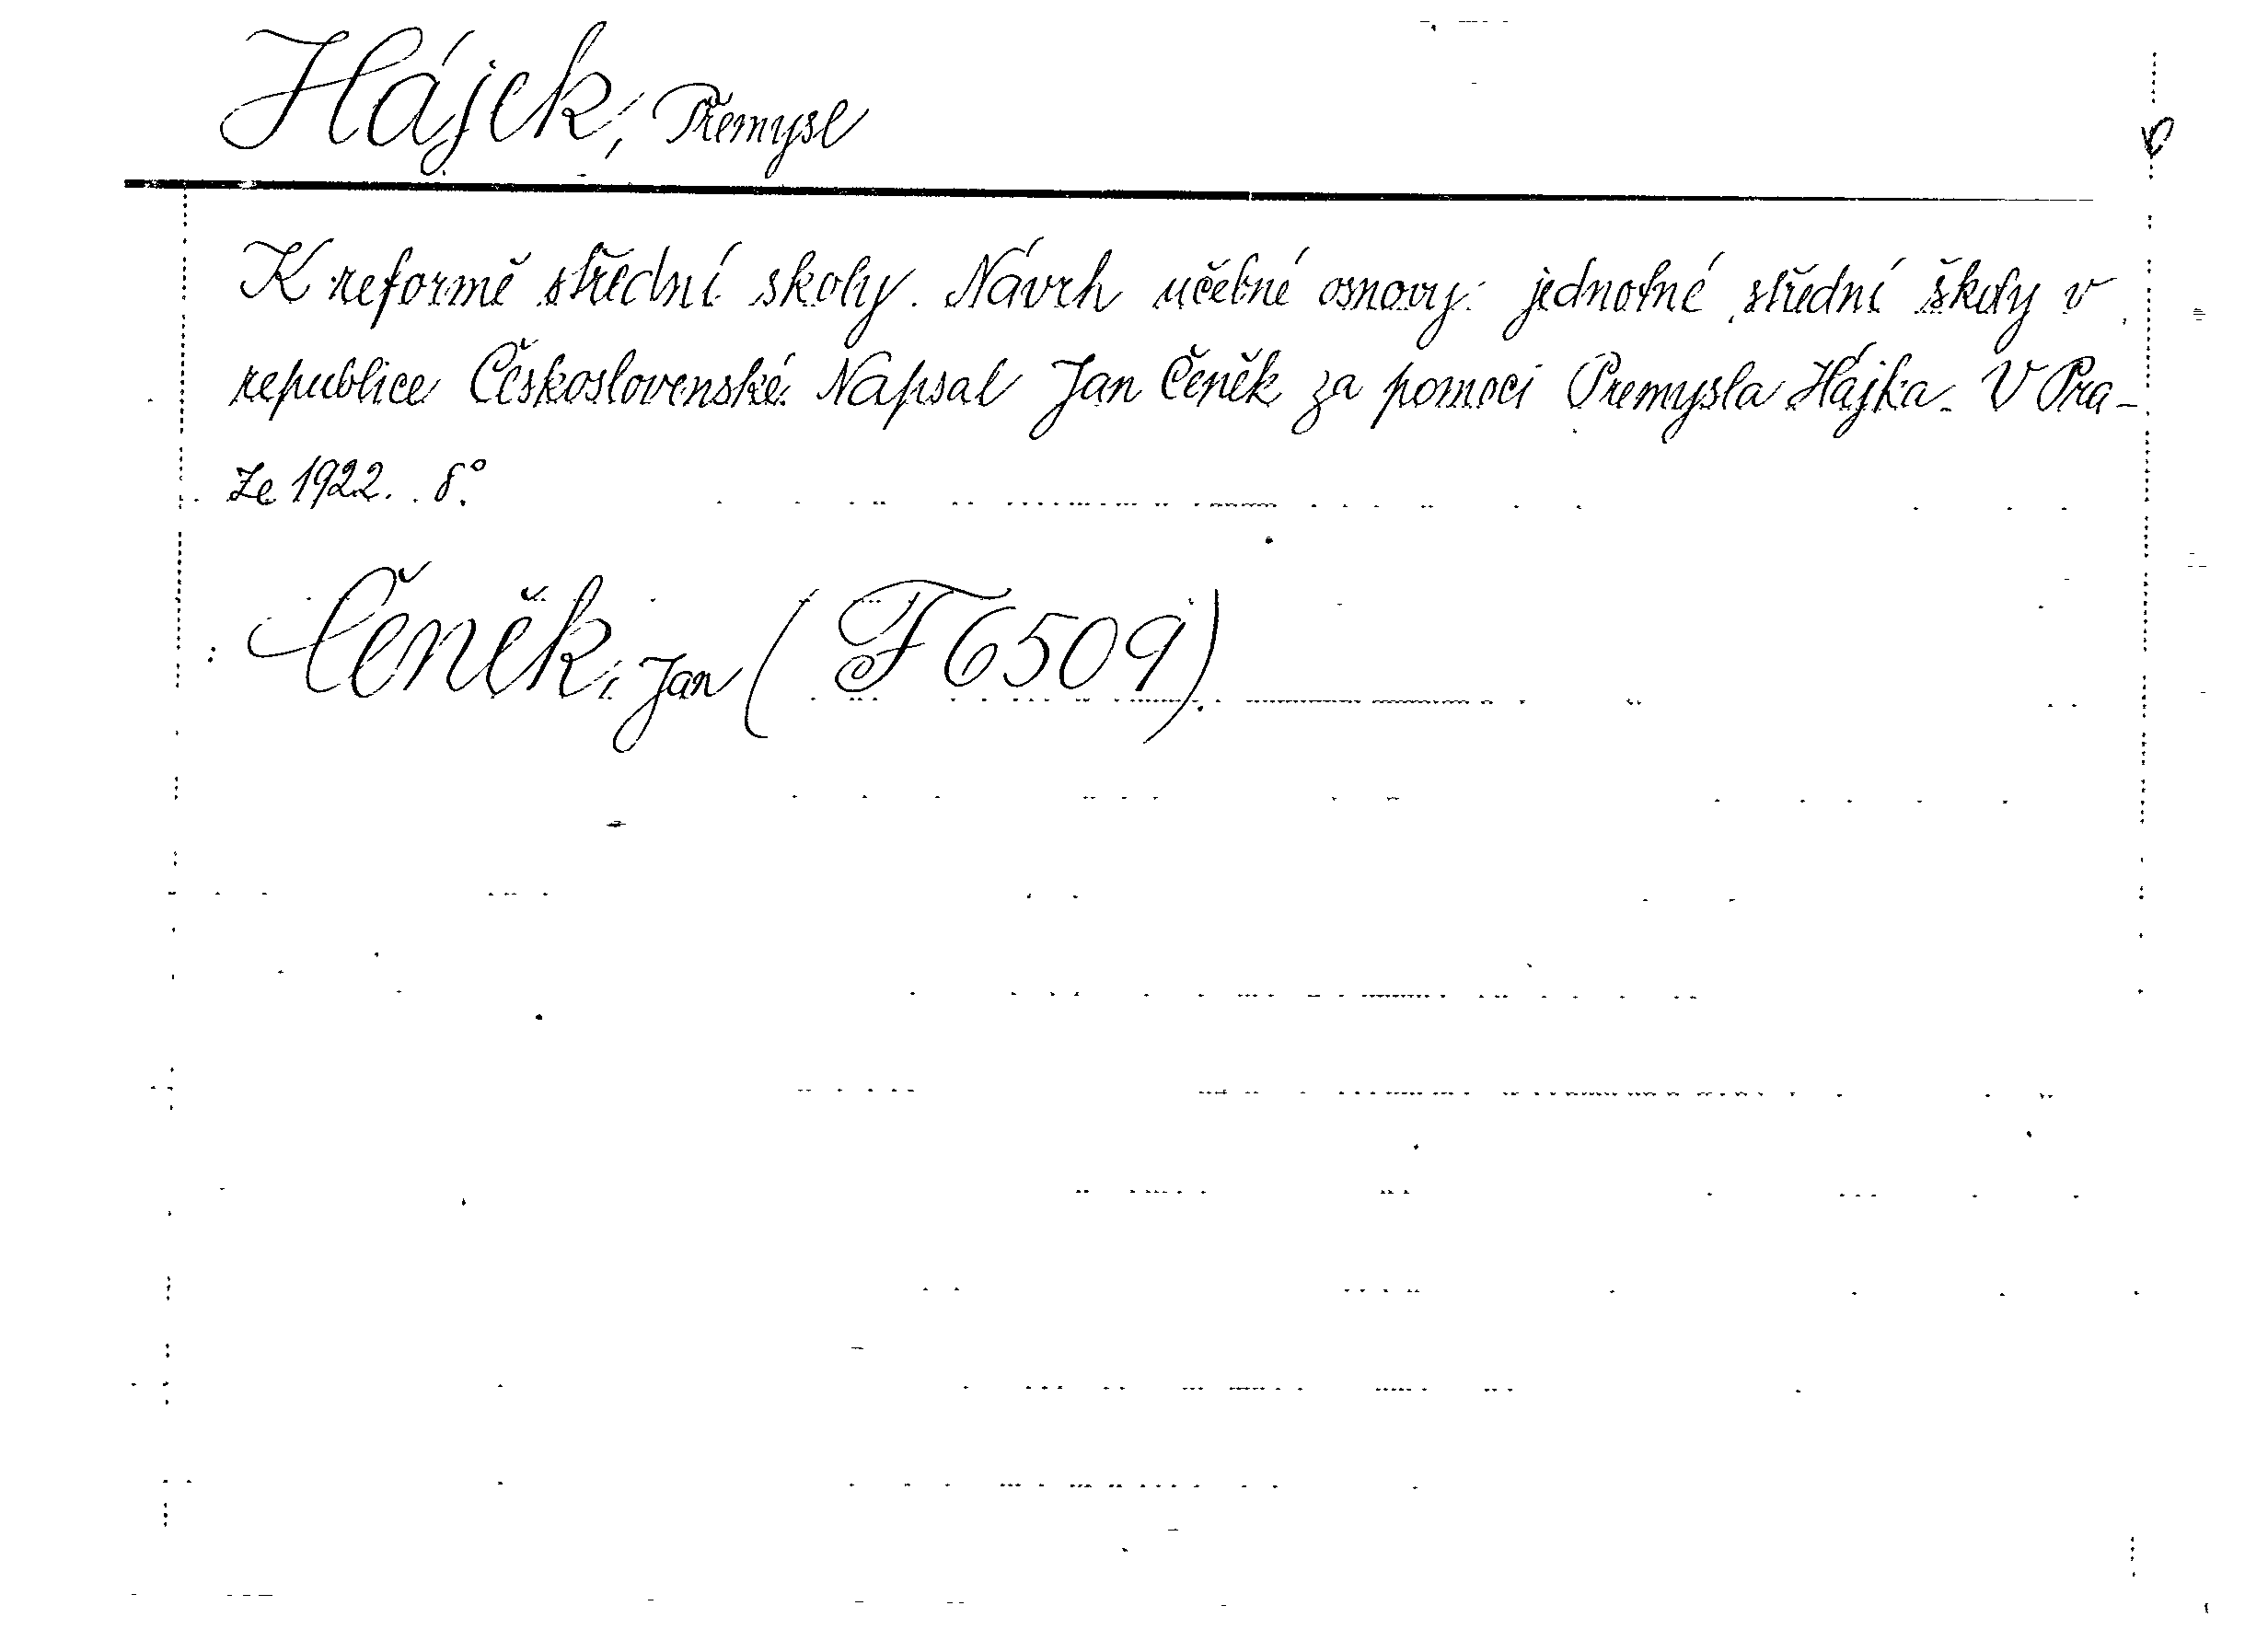 Hájek, Přemysl
K reformě střední skoly. Návrh učebné osnovy jednotné střední školy v
republice Československé. Napsal Jan Čeněk za pomoci Přemysla Hájka. V Pra-
ze 1922. 8°.
Čeněk, Jan (F 6509).